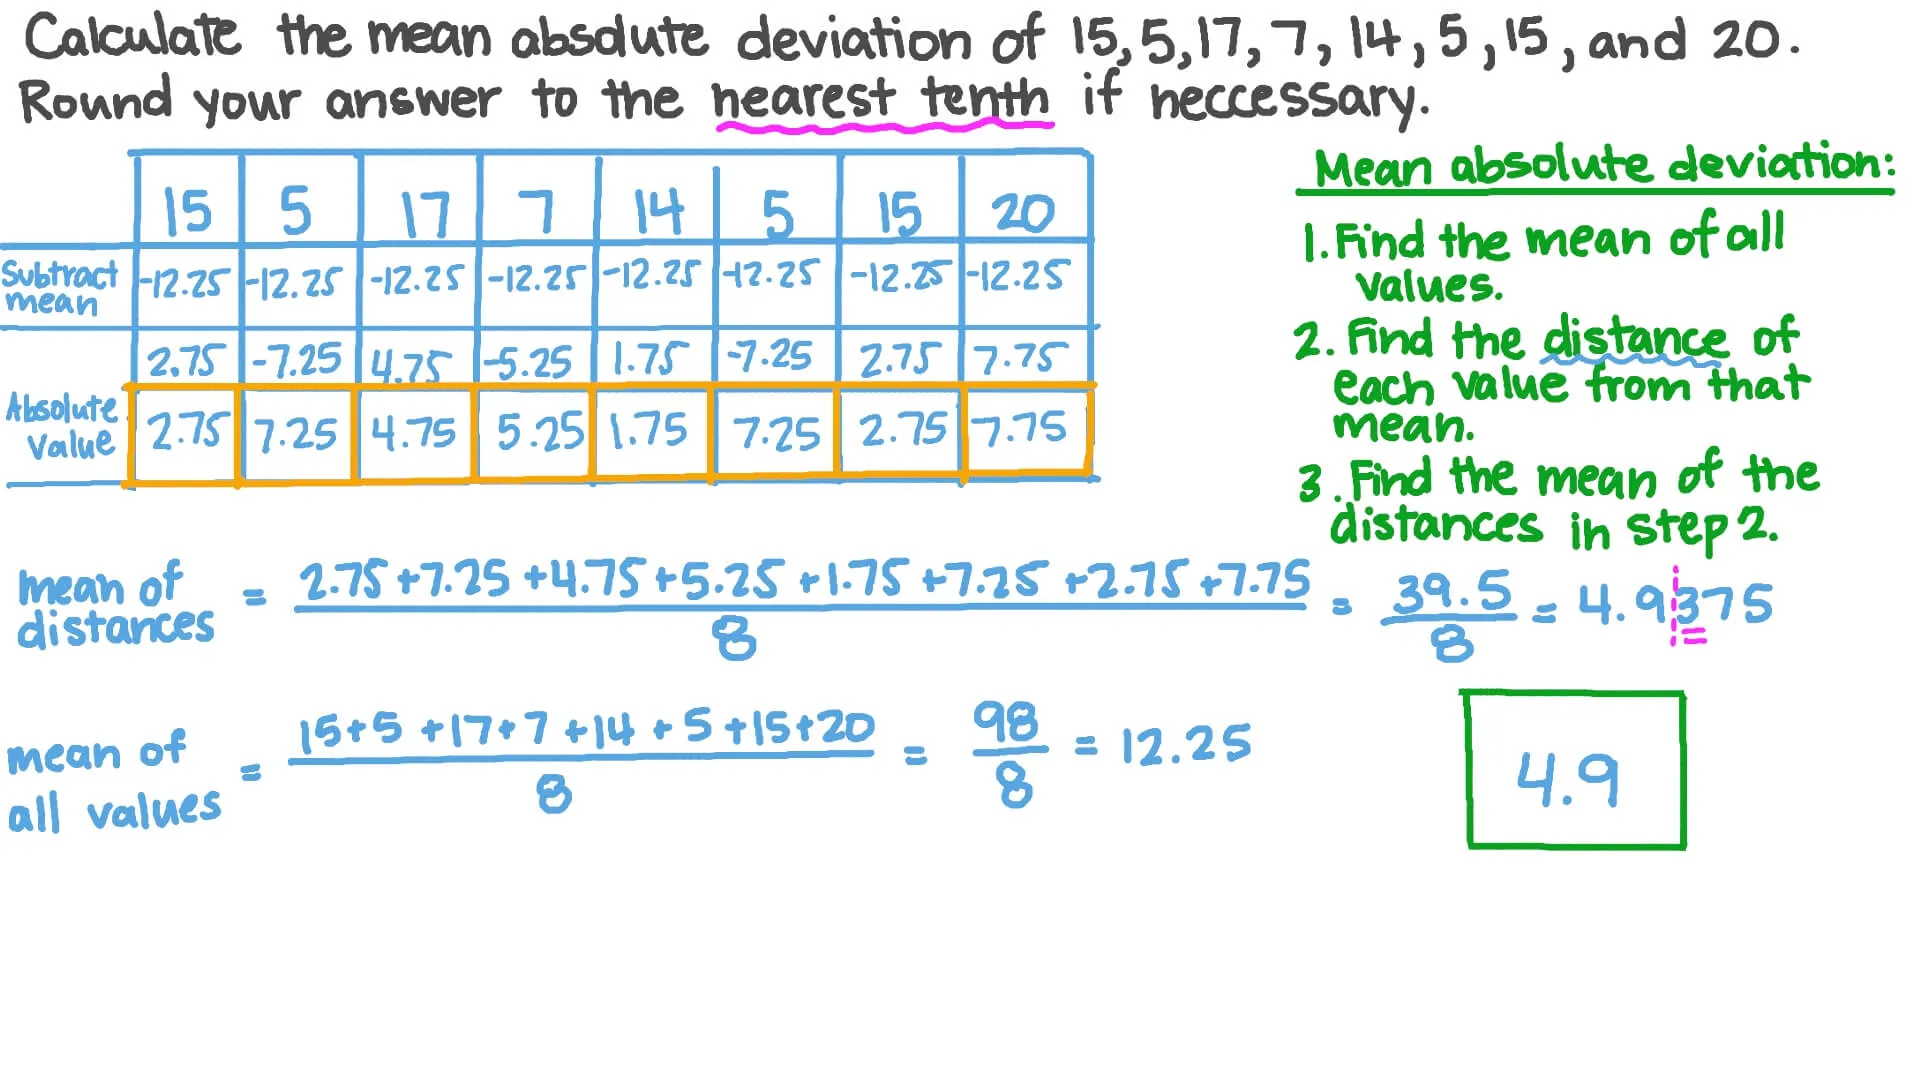 Calculate the mean absolute deviation of 15, 5, 17, 7, 14, 5, 15, and 20.
Round your answer to the nearest tenth if neccessary.
15 5 17 7 14 5 15 20
Subtract mean -12.25 -12.25 -12.25 -12.25 -12.25 -12.25 -12.25 -12.25
2.75 -7.25 4.75 -5.25 1.75 -7.25 2.75 7.75
Absolute Value 2.75 7.25 4.75 5.25 1.75 7.25 2.75 7.75
Mean absolute deviation:
1. Find the mean of all
values.
2. Find the distance of
each value from that
mean.
3. Find the mean of the
distances in step 2.
mean of distances = 2.75+7.25+4.75+5.25+1.75+7.25+2.75+7.75 / 8 = 39.5 / 8 = 4.9375
mean of all values = 15+5+17+7+14+5+15+20 / 8 = 98 / 8 = 12.25
4.9